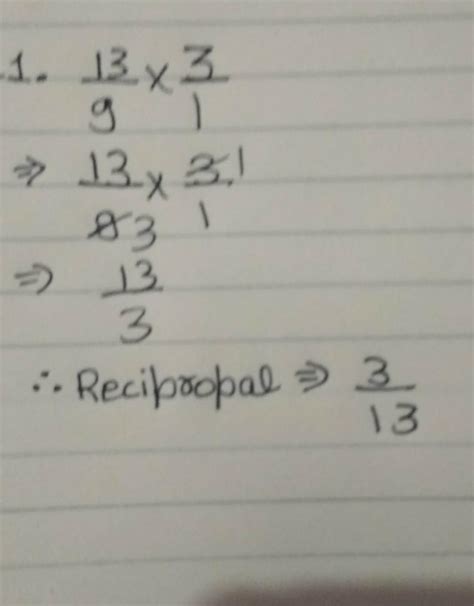 1. 13/9 × 3/1
⇒ 13/9̸ 3 × 3̸ 1/1
⇒ 13/3
∴ Recipropal ⇒ 3/13